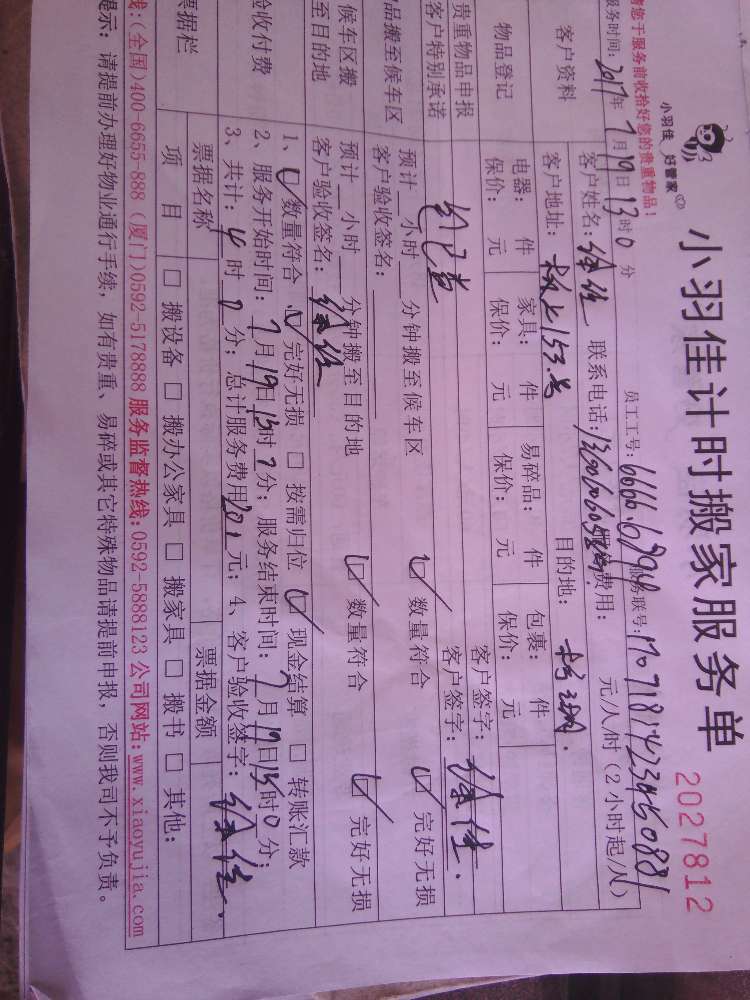 小羽佳计时搬家服务单
2027812
小羽佳 好管家
您于服务前收拾好您的贵重物品!
服务时间: 2017年7月19日13时0分 员工工号: 服务联号:
客户资料
客户姓名: 联系电话: 费用: 元/人/时(2小时起/人)
客户地址: 目的地:
物品登记
电器: 件 家具: 件 易碎品: 件 包裹: 件
保价: 元 保价: 元 保价: 元 保价: 元
贵重物品申报 客户签字:
客户特别承诺 客户签字:
品搬至候车区
预计 小时 分钟搬至候车区 数量符合 完好无损
客户验收签名:
候车区搬至目的地
预计 小时 分钟搬至目的地 数量符合 完好无损
客户验收签名:
验收付费
1、 数量符合 完好无损 按需归位 现金结算 转账汇款
2、服务开始时间: 7月19日13时 分; 服务结束时间: 7月19日15时0分;
3、共计: 时 分; 总计服务费用 元; 4、客户验收签字:
票据栏
票据名称 票据金额
项目 搬设备 搬办公家具 搬家具 搬书 其他:
线:(全国)400-6655-888 (厦门)0592-5178888 服务监督热线:0592-5888123 公司网站:www.xiaoyujia.com
提示: 请提前办理好物业通行手续, 如有贵重、易碎或其它特殊物品请提前申报, 否则我司不予负责。